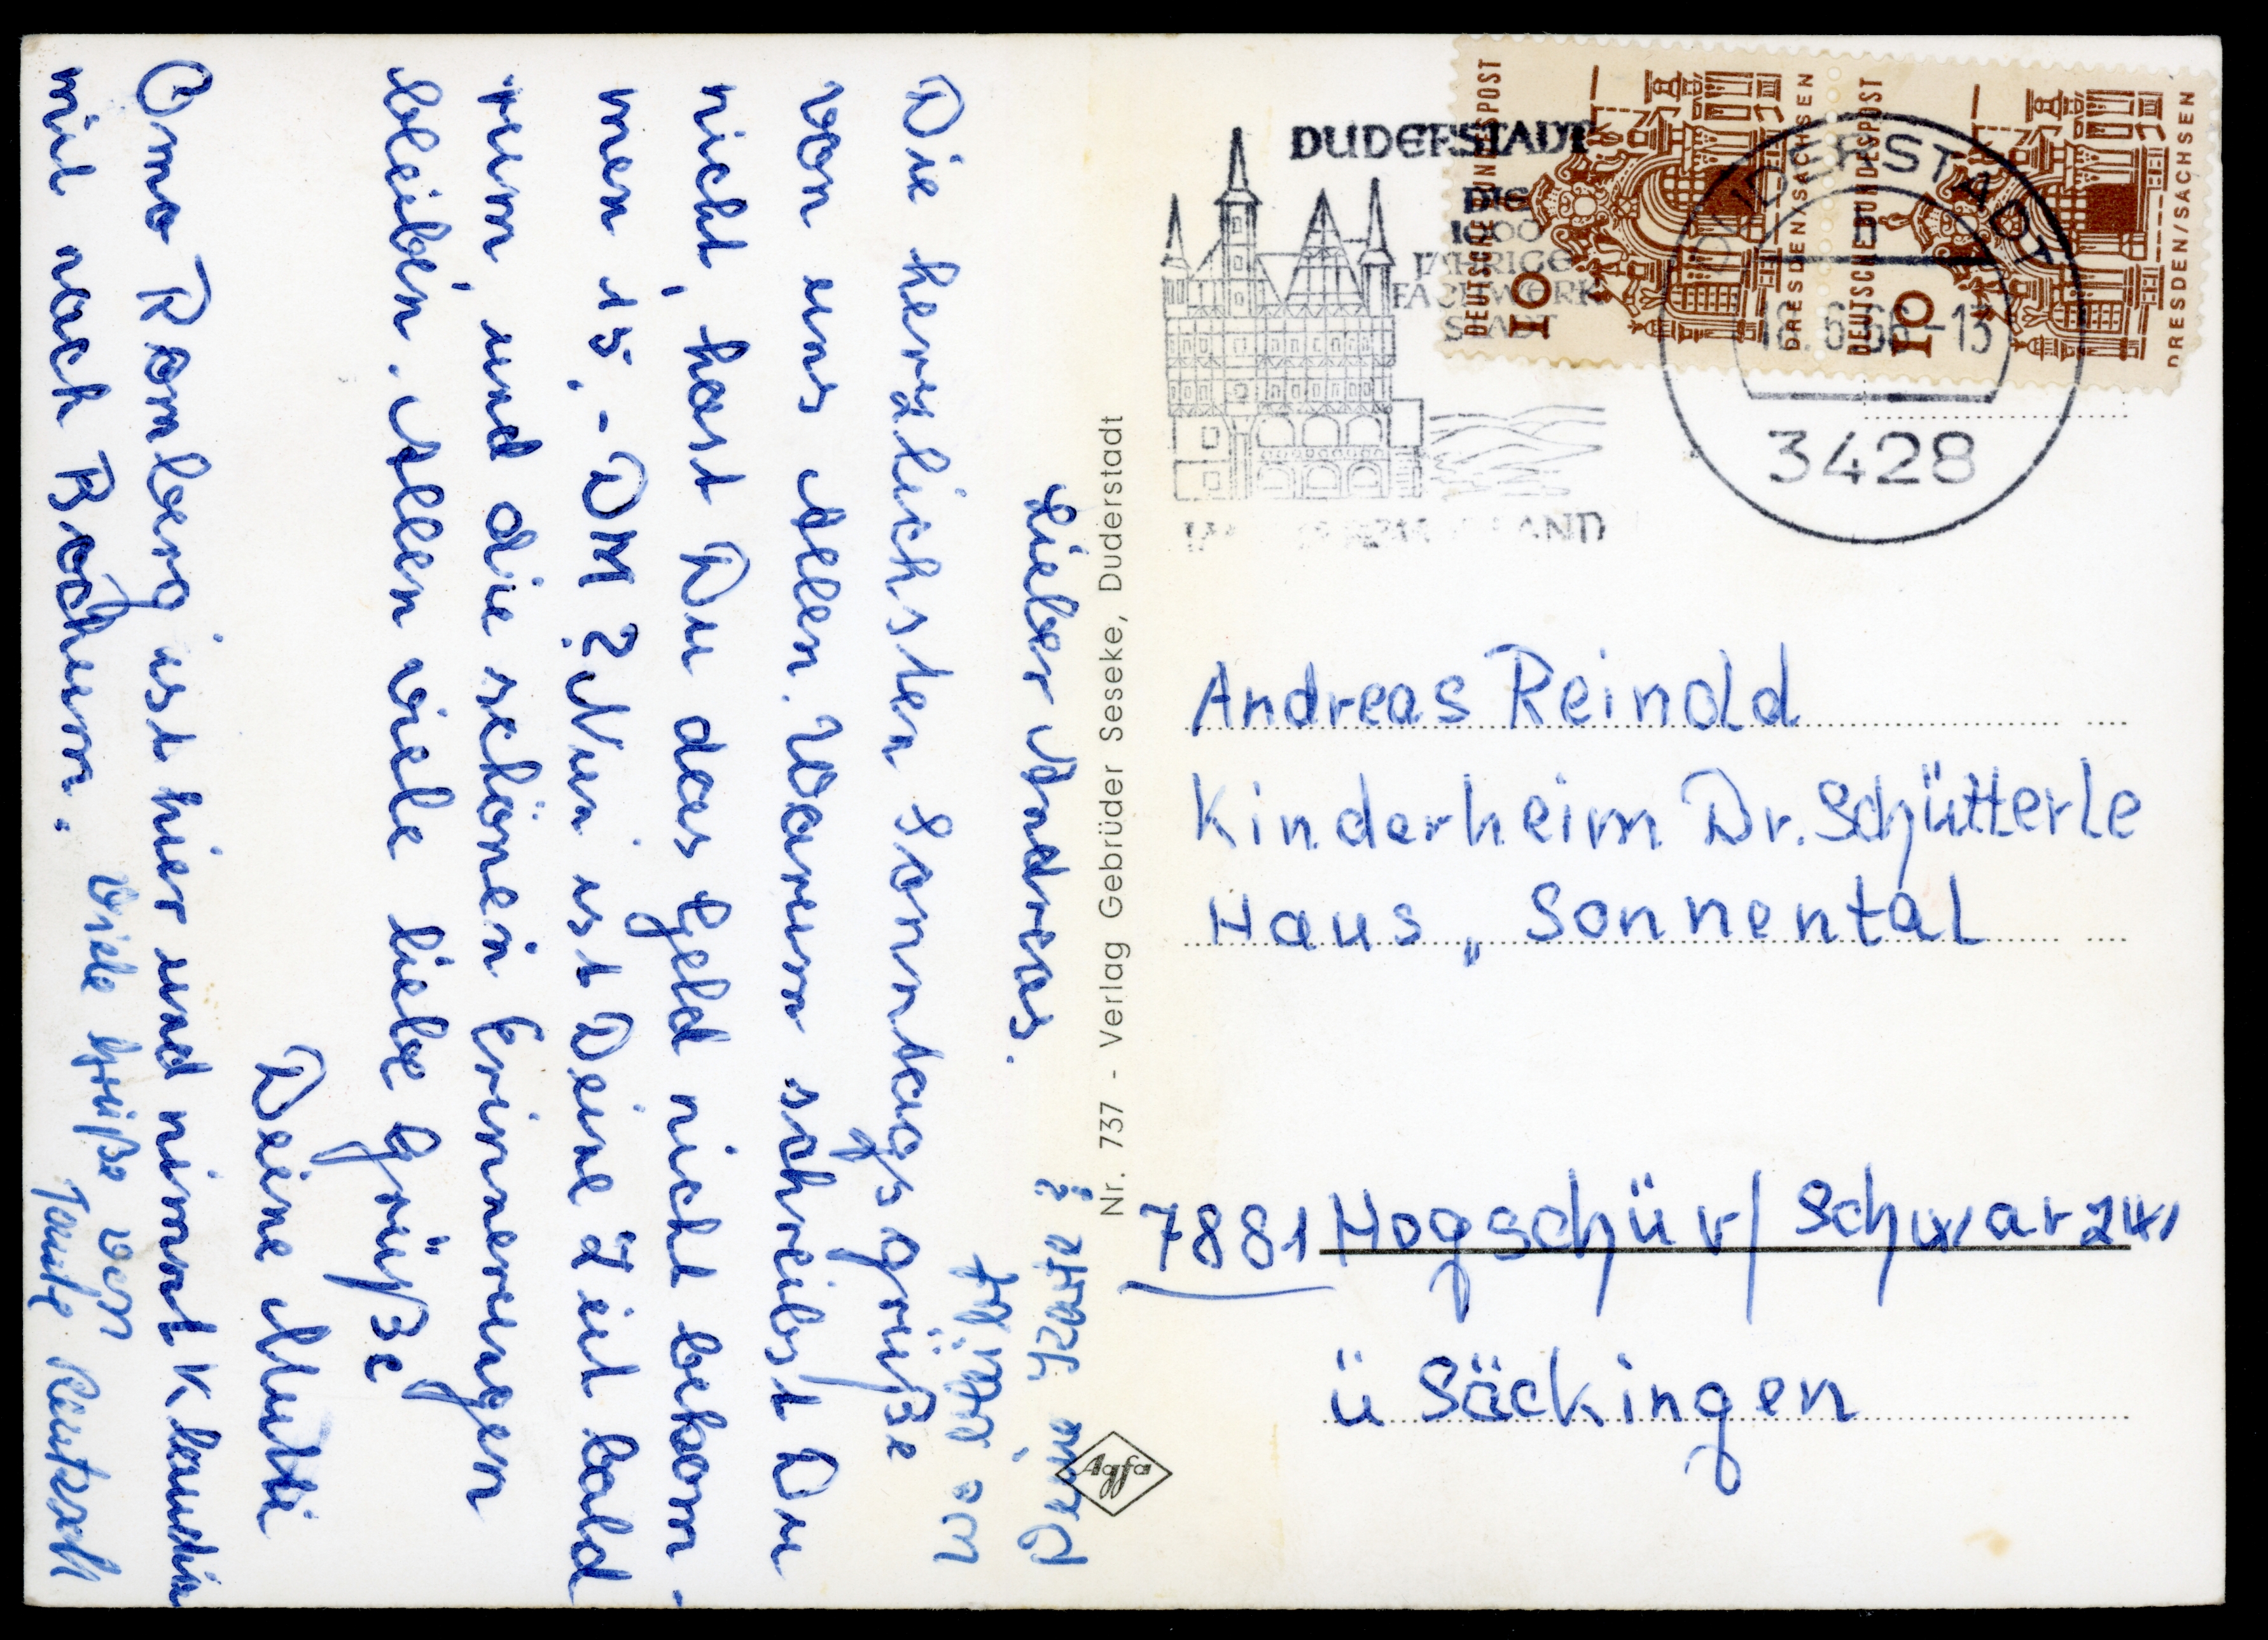 Lieber Andreas.
Die herzlichsten Sonntagsgrüße
von uns Allen. Warum schreibst Du
nicht, hast Du das Geld nicht bekom-
men 15,-DM? Nun ist Deine Zeit bald
rum, und die schönen Erinnerungen
bleiben. Allen viele liebe Grüße
Deine Mutti
Oma Romberg ist hier und nimmt Klaudia
mit nach Bochum.
Viele Grüße von
Tante
Nr. 737 - Verlag Gebrüder Seseke, Duderstadt
Agfa
DUDERSTADT
DIE
1000
JÄHRIGE
FACHWERK
STADT
DEUTSCHE BUNDESPOST
10
DRESDEN/SACHSEN
DEUTSCHE BUNDESPOST
10
DRESDEN/SACHSEN
DUDERSTADT
18.6.66-13
3428
Andreas Reinold
Kinderheim Dr. Schütterle
Haus „ Sonnental
7881 Hogschür/Schwarzw
ü Säckingen